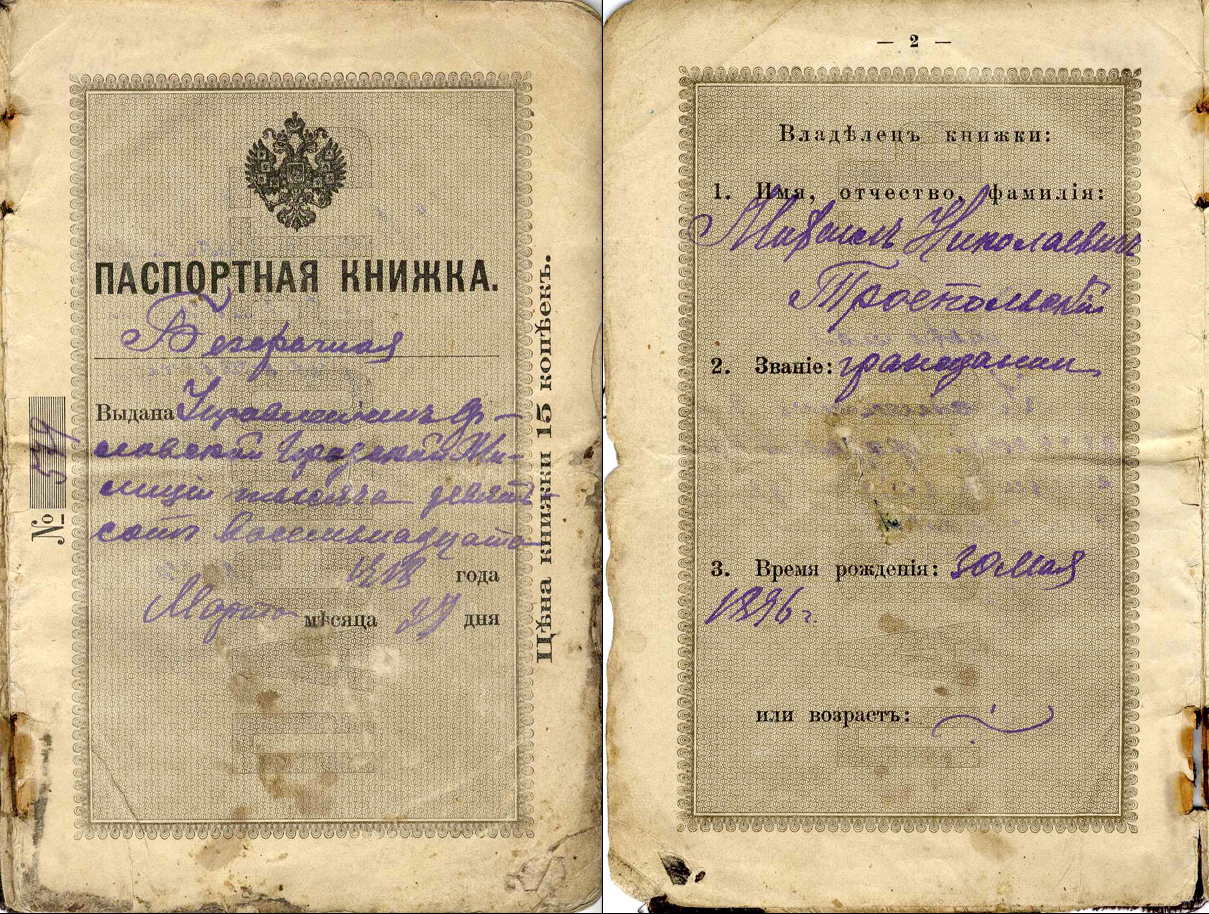 ПАСПОРТНАЯ КНИЖКА.
Безсрочная
Выдана Управленіемъ
Городской Ми-
лиціи тысяча девять-
сотъ восемьнадцата
1918 года
Мартъ мѣсяца 29 дня
№ 579
Цѣна книжки 15 копѣекъ.
— 2 —
Владѣлецъ книжки:
1. Имя, отчество, фамилія:
Николаевичъ
2. Званіе: гражданин
3. Время рожденія: 30 Мая
1896 г.
или возрастъ: